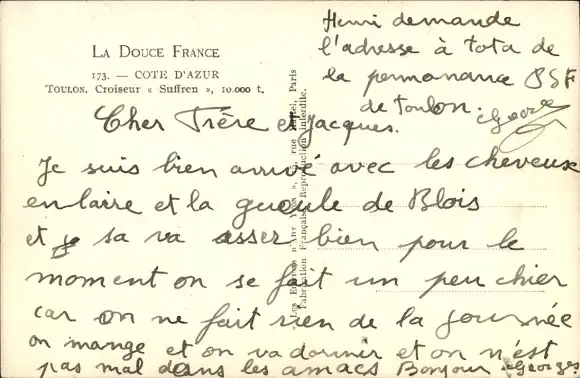 LA DOUCE FRANCE
173. — COTE D'AZUR
TOULON. Croiseur « Suffren », 10.000 t.
Henri demande
l'adresse à tota de
la permanance PSF
de toulon.
George
Cher Frère et Jacques.
Je suis bien arrivé avec les cheveux
en laire et la gueule de Blois
et sa va asser bien pour le
moment on se fait un peu chier
car on ne fait rien de la journée
on mange et on va dormir et on n'est
pas mal dans les amacs Bonjour Georges
Fabrication Française - Reproduction Interdite.